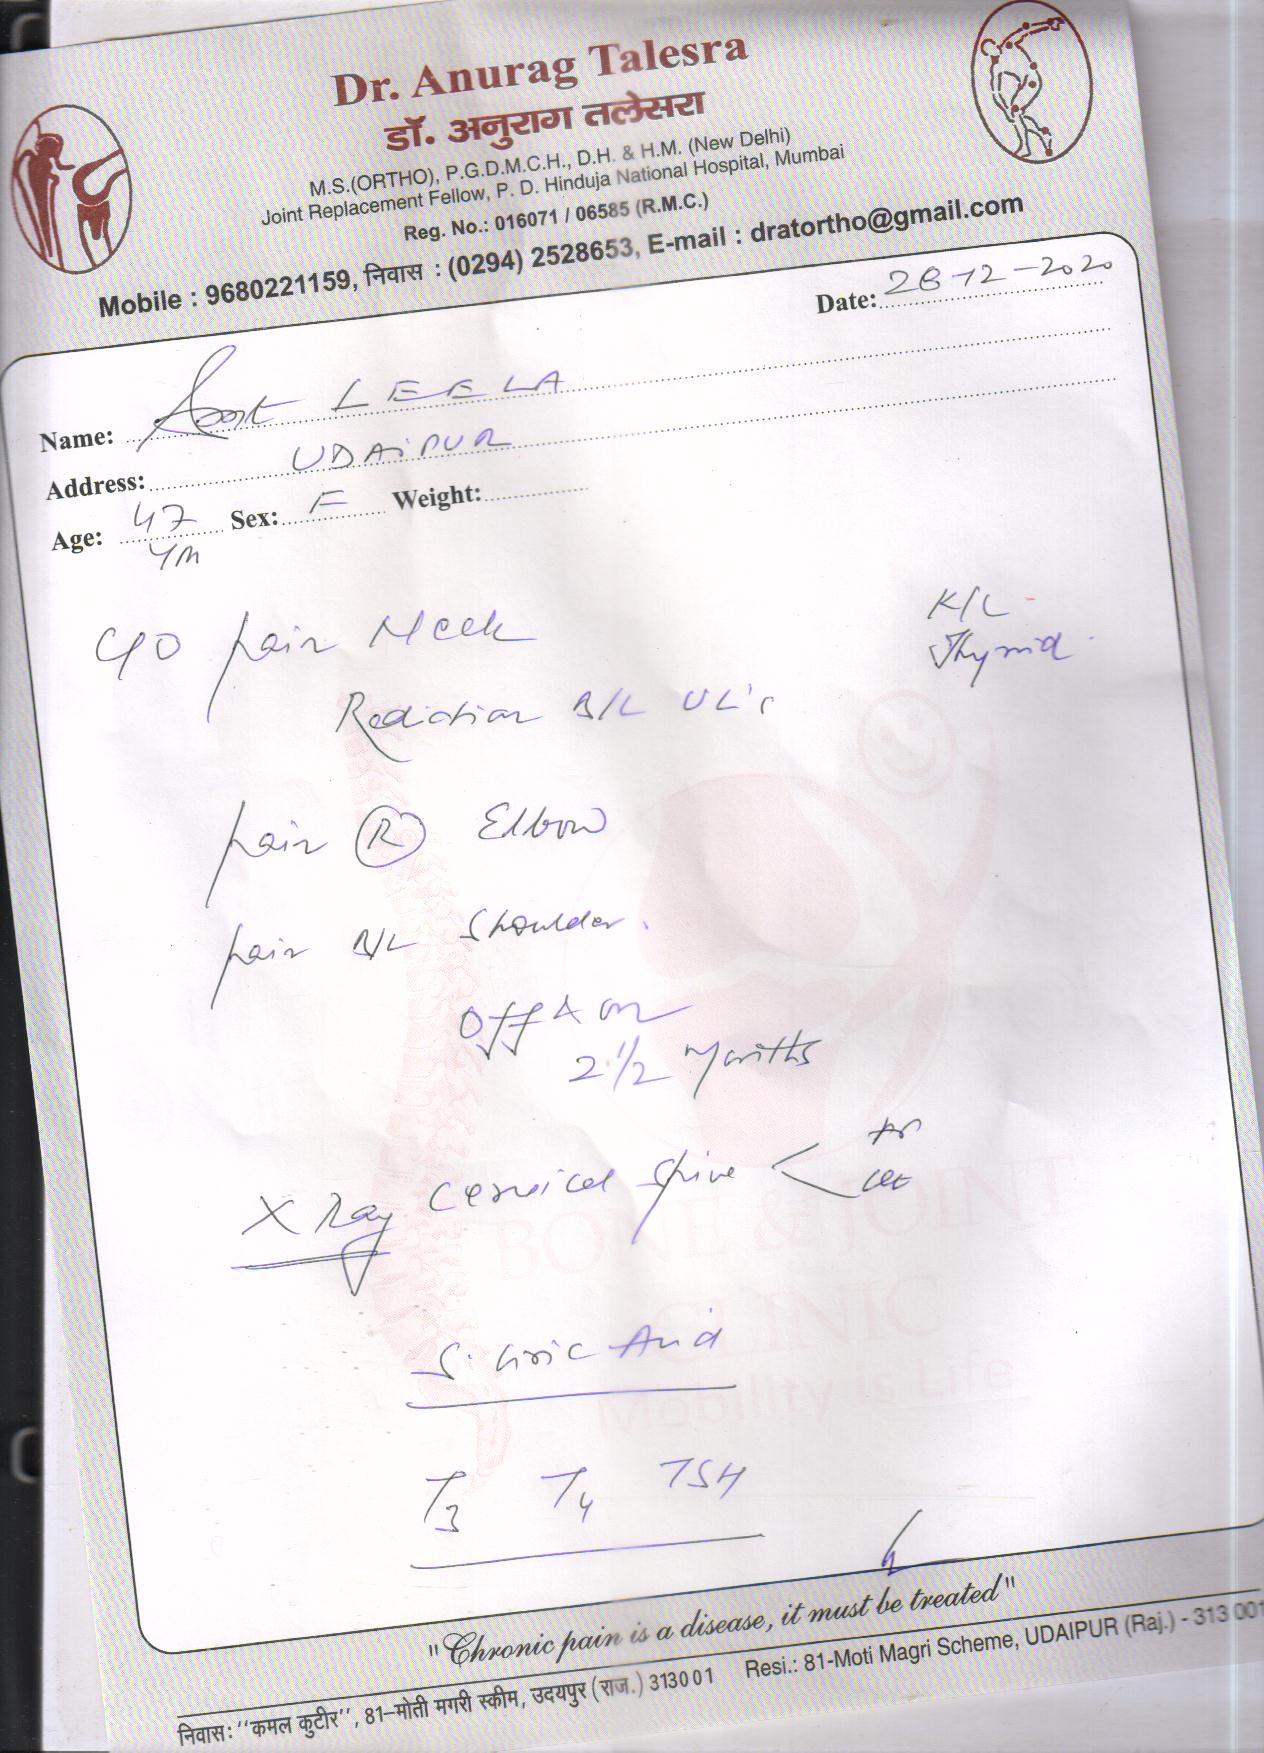 Dr. Anurag Talesra
डॉ. अनुराग तलेसरा
M.S.(ORTHO), P.G.D.M.C.H., D.H. & H.M. (New Delhi)
Joint Replacement Fellow, P. D. Hinduja National Hospital, Mumbai
Reg. No.: 016071 / 06585 (R.M.C.)
Mobile : 9680221159, निवास : (0294) 2528653, E-mail : dratortho@gmail.com
Date: 28-12-2020
Name: Smt LEELA
Address: UDAIPUR
Age: 47 Sex: F Weight:
K/C
Thyroid
C/O pain Neck
Radiation B/L UL's
pain R Elbow
pain B/L Shoulder.
Off & on
2 1/2 Months
X Ray Cervical Spine < AP
Lat
S. Uric Acid
T3 T4 TSH
BONE & JOINT
CLINIC
Mobility is Life
"Chronic pain is a disease, it must be treated"
निवास: ''कमल कुटीर'', 81–मोती मगरी स्कीम, उदयपुर (राज.) 313001 Resi.: 81-Moti Magri Scheme, UDAIPUR (Raj.) - 313 001